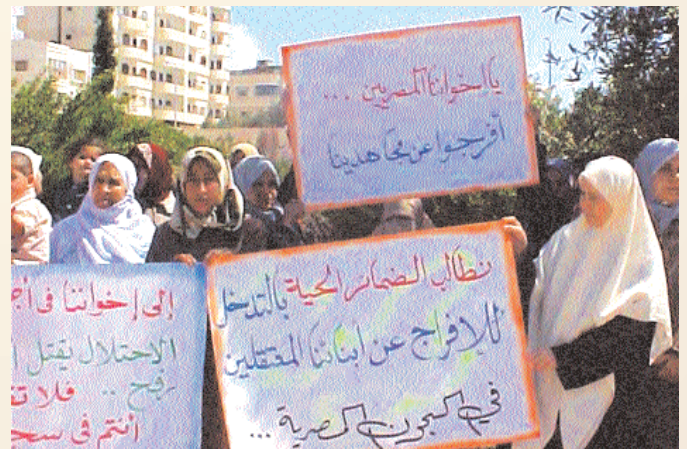 يا اخواننا المصريين ...
أفرجوا عن مجاهدينا
نطالب الضمائر الحية بالتدخل
للإفراج عن ابنائنا المعتقلين
في السجون المصرية ...
إلى إخواننا فى
الاحتلال يقتل
رفح .. فلا
أنتم فى